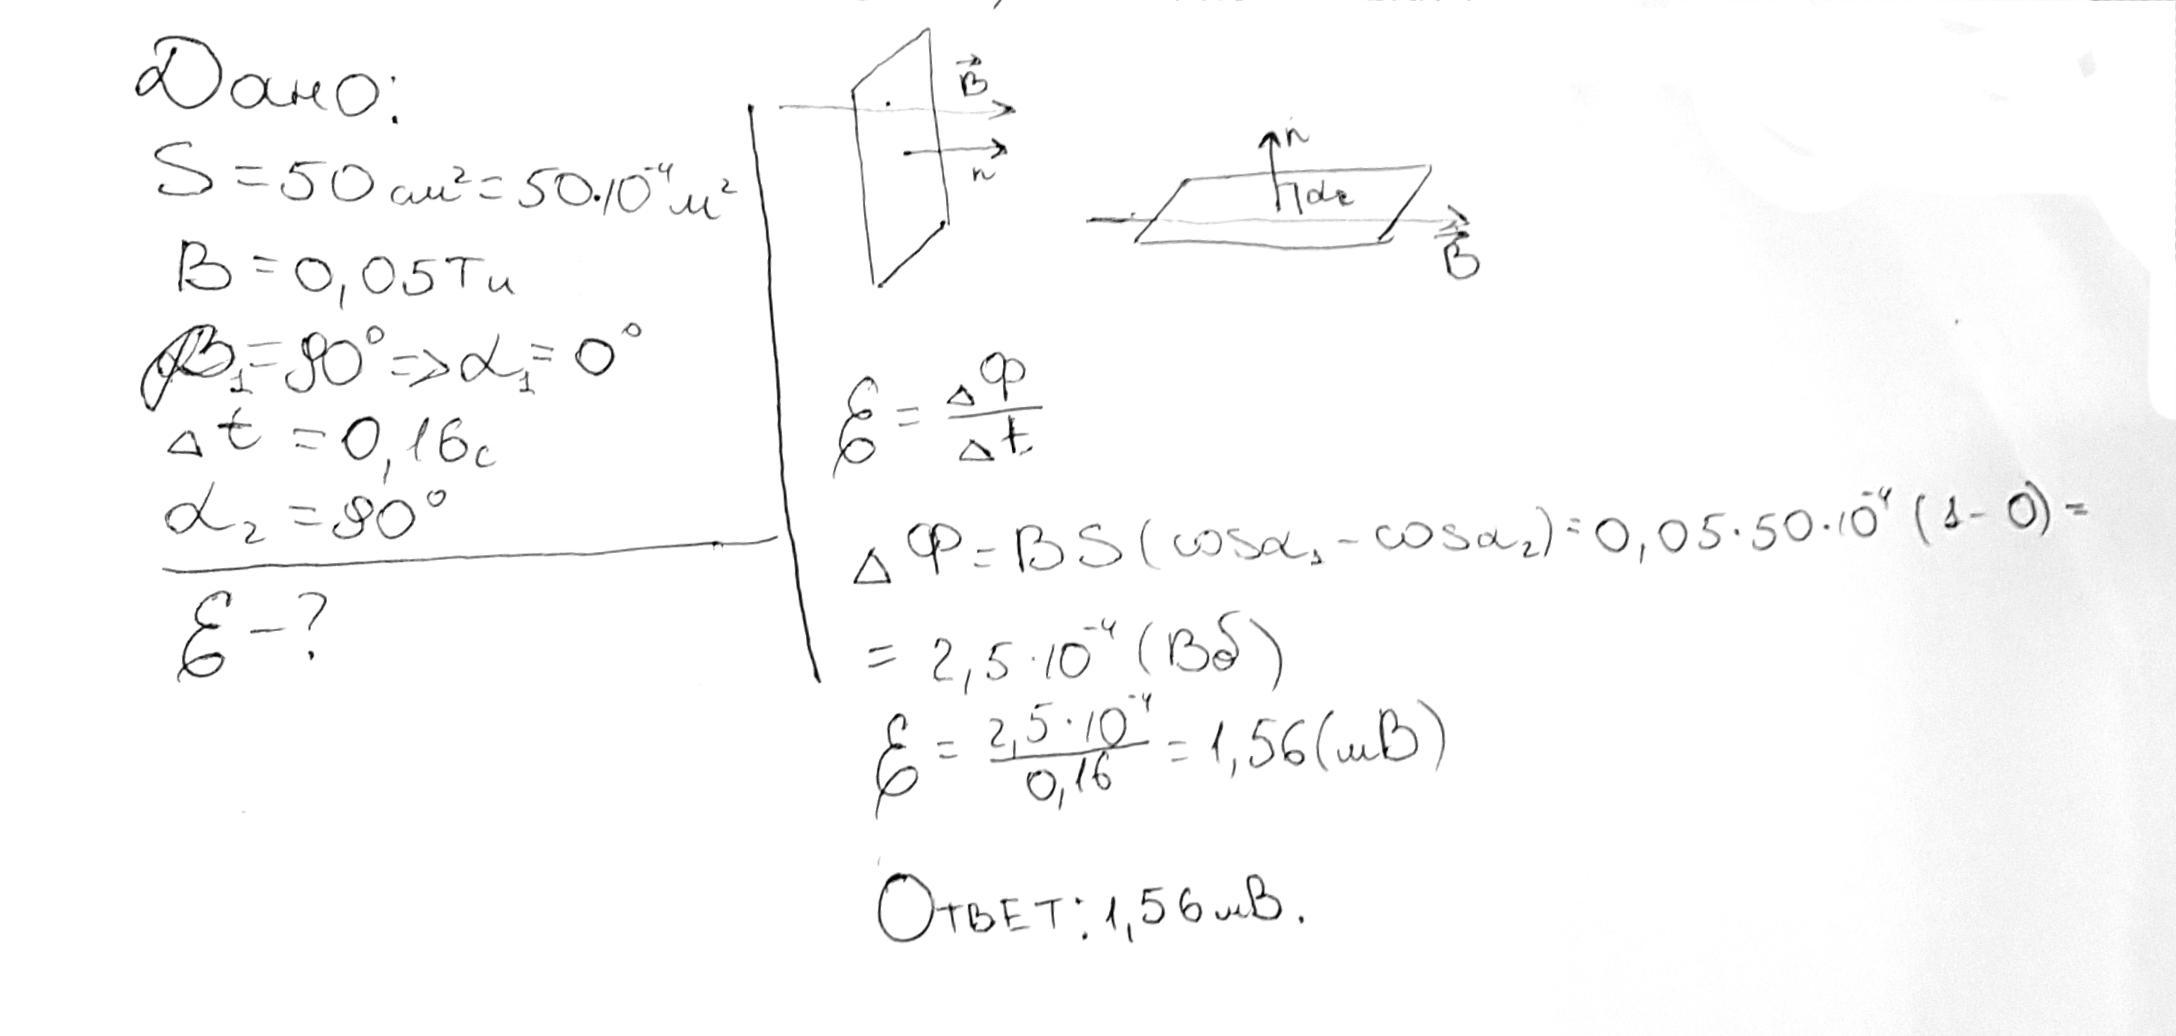 Дано:
S = 50 см² = 50·10⁻⁴ м²
B = 0,05 Тл
β₁ = 90° => α₁ = 0°
Δt = 0,16 с
α₂ = 90°
ℰ – ?
B⃗
n
n
α₂
B⃗
ℰ = ΔФ/Δt
ΔФ = BS(cosα₁ - cosα₂) = 0,05·50·10⁻⁴ (1 - 0) =
= 2,5·10⁻⁴ (Вб)
ℰ = 2,5·10⁻⁴/0,16 = 1,56 (мВ)
Ответ: 1,56 мВ.